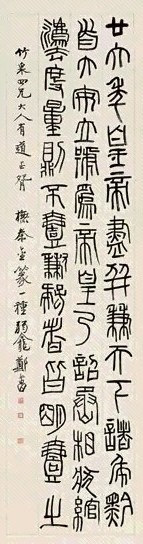 廿六年皇帝盡并兼天下諸侯黔
首大安立號為帝皇乃詔丞相狀綰
灋度量則不壹歉疑者皆明壹之
竹泉四兄大人有道正臂 橅秦金篆一種 鄭